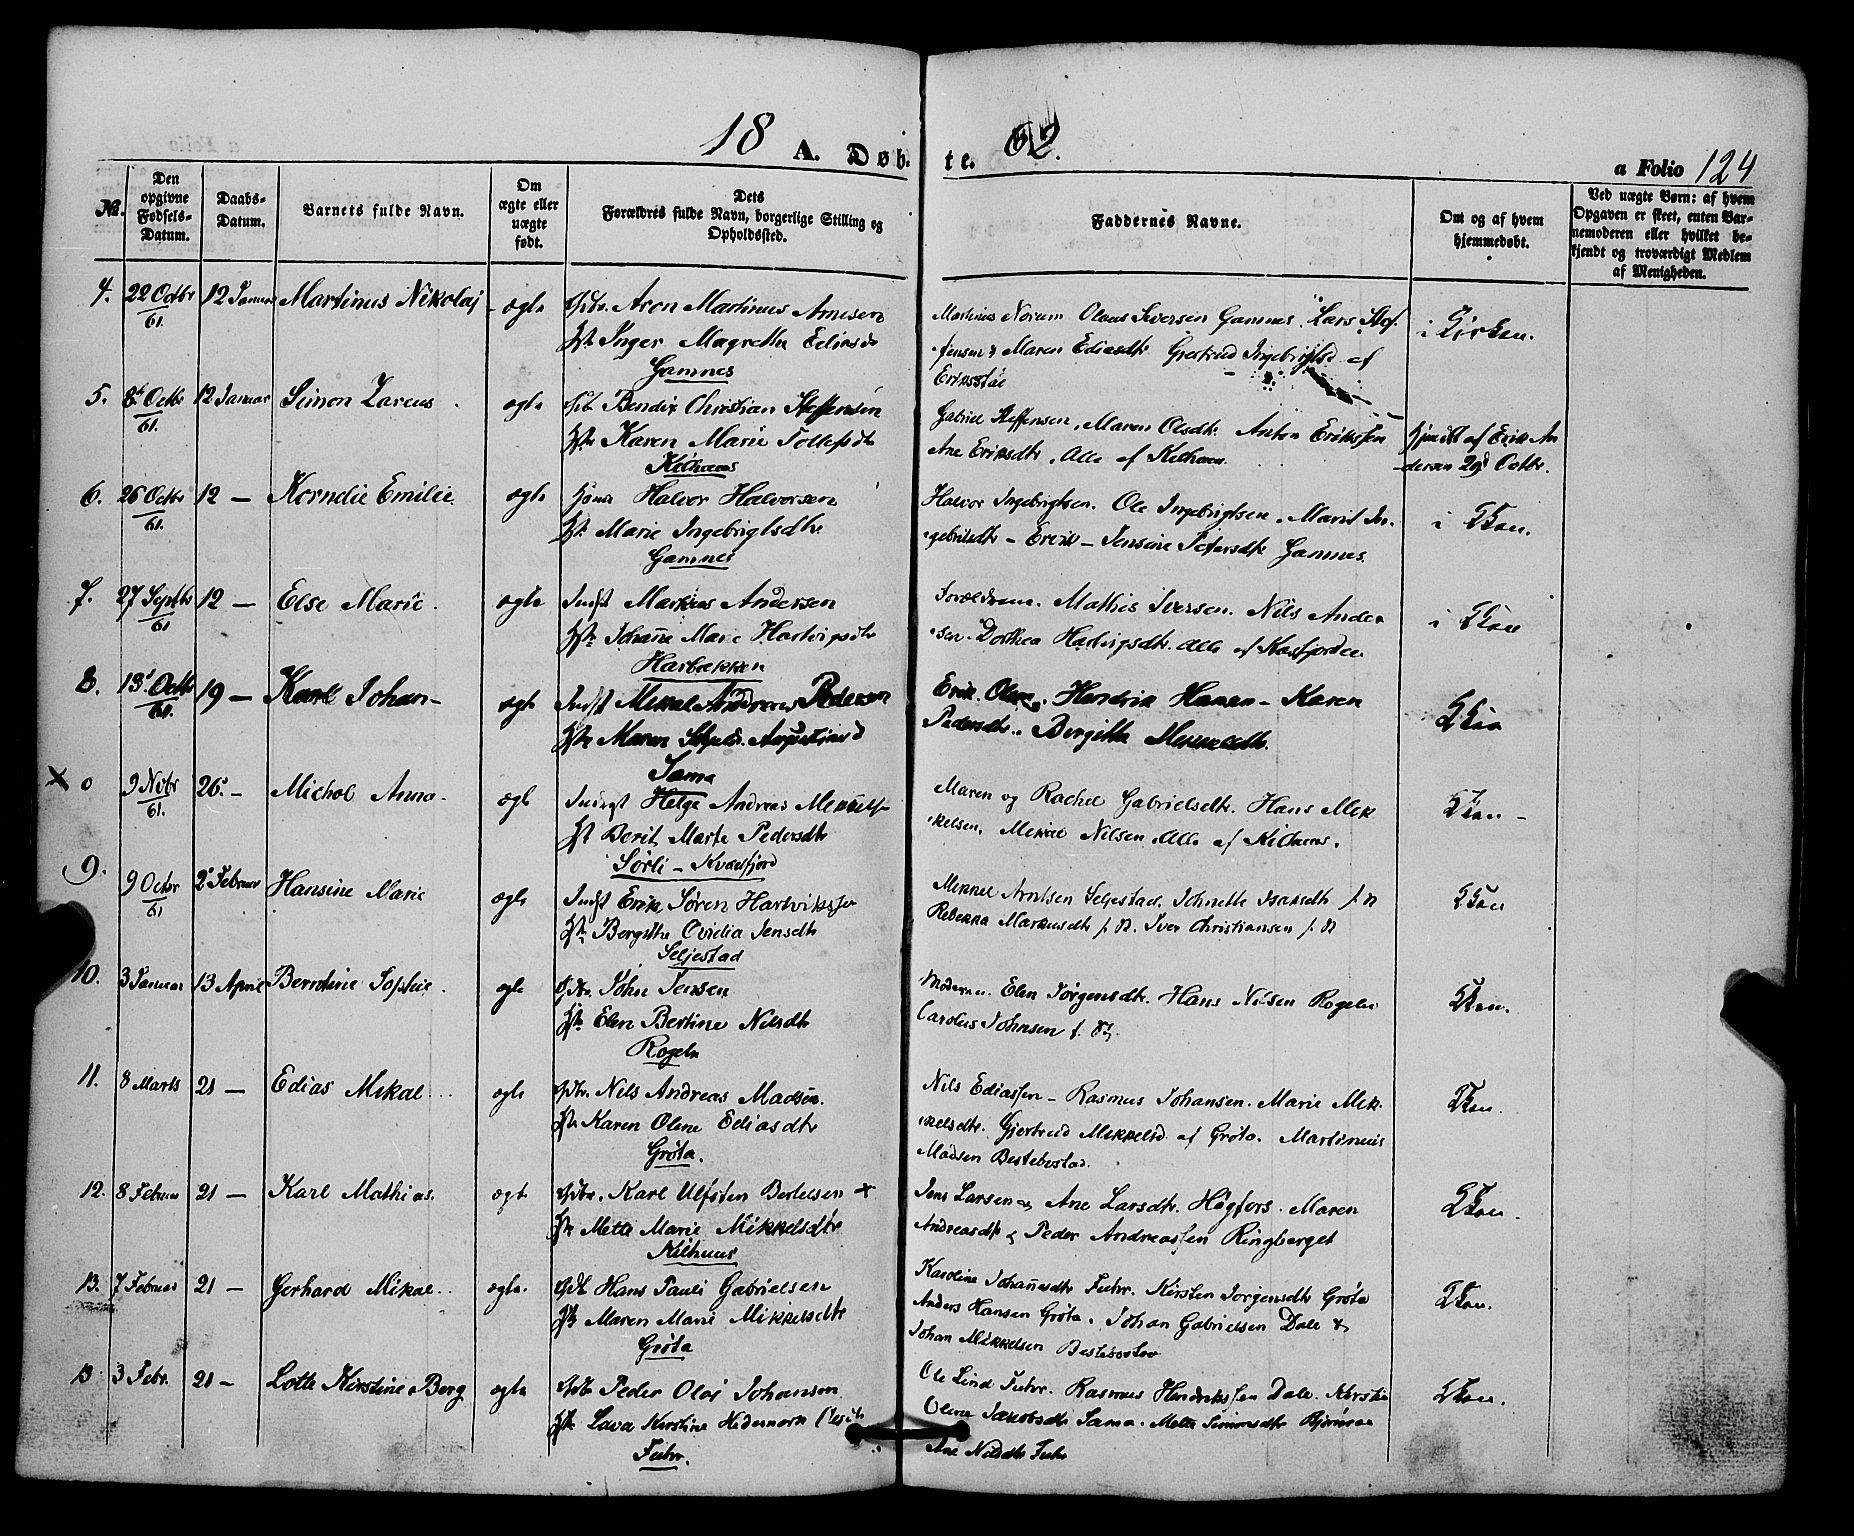 18 A. Døb-
te. 62.
a Folio 124
No.
Den opgivne Fødsels-Datum.
Daabs-Datum.
Barnets fulde Navn.
Om ægte eller uægte født.
Dets Forældres fulde Navn, borgerlige Stilling og Opholdssted.
Faddernes Navne.
Om og af hvem hjemmedøbt.
Ved uægte Børn: af hvem Opgaven er skeet, enten Barnemoderen eller hvilket bekjendt og troværdigt Medlem af Menigheden.
4. 22 Octbr 61. 12 Januar Martinus Nikolaj ægte
Aron Martinus Arnesen
Inger Magrethe Ediasd
Gamnes
Martinus Norum Olaus Iversen Gamnes. Lars
Maren Ediasdtr Gjertrud af
i Kirken.
5. 8 Octbr 61. 12 Januar Simon Zareus ægte
Bendix Christian Steffensen
Karen Marie
Kilhuus
Gabriel Steffensen, Maren Olsdtr. Anton Eriksen
Ane Eriksdtr. Alle af Kilhuus.
af Erik An
dersen Octbr.
6. 26 Octbr 61. 12 — Korndie Emilie ægte
Halvor Halvorsen
Marie Ingebrigtsdtr
Gamnes
Halvor Ingebrigtsen. Ole Ingebrigtsen. Marit In-
gebrigtsdtr – – Jensine Pedersdtr Gamnes.
i
7. 27 Septbr 61 12 — Else Marie. ægte
Indst Markus Andersen
Johanne Marie Hartvigsdtr
Harbakken
Forældrene. Mathis Iversen. Nils Ander
sen. Dorthea Hartvigsdtr. alle af
i
8. 13 Octbr 61. 19 — Karl Johan – ægte
Indst Mikal Andreas Pedersen
Maren
Sama
Erik Olsen. Hendrik Hansen – Karen
Pedersdtr. Bergitte Mikkelsdtr.
x 0 9 Novbr 61. 26. – Michol Anna – ægte
Helge Andreas
Berit Marte Pedersdtr
Sørli – Kvæfjord
Maren og Rachel Gabrielsdtr. Hans Mik
kelsen, Mikal Nilsen. Alle af Kilhuus.
9. 9 Octbr 61 2 Februar Hansine Marie ægte
Indst Erik Søren Hartviksen
Bergithe Ovidia Jensdtr
Seljestad
Arntsen Seljestad. Isaksdtr
Rebekka Markusdtr. Iver Christiansen
10. 3 Januar 13 April Berntine Sophie. ægte
John Jensen
Elen Bertine Nilsdtr
Rogeln
Moderen. Elen Jørgensdtr. Hans Nilsen Rogeln
Carolus Johnsen
11. 8 Marts 21 — Edias Mikal ægte
Nils Andreas Madsen.
Karen Olene Ediasdtr
Grøta.
Nils Ediassen – Rasmus Johansen. Marie Mik-
kelsdtr. Gjertrud Mikkelsd. af Grøta. Martinus
Madsen Bestebostad.
12. 8 Februar 21 — Karl Mathias. ægte
Karl Ulfsten Bertelsen x
Mette Marie Mikkelsdtr
Kilhuus
Jens Larsen og Ane Larsdtr. Høgfors. Maren
Andreasdtr og Peder Andreassen Ringberget
13. 7 Februar 21 — Gerhard Mikal ægte.
Hans Pauli Gabrielsen
Maren Marie Mikkelsdtr
Grøta
Karoline Johannesdtr Fuhr. Kirsten Jørgensdtr Grøta
Anders Hansen Grøta. Johan Gabrielsen Dale &
Johan Mikkelsen Bestebostad
13 3 Febr. 21 — Lotte Kirstine Berg ægte
Peder Olai Johansen
Lava Kirstine
Fuhr.
Ole Lind Fuhr. Rasmus Hendriksen Dale.
Olene Jakobsdtr Sama. Mette Simonsdtr
Ane Nilsdtr Fuhr